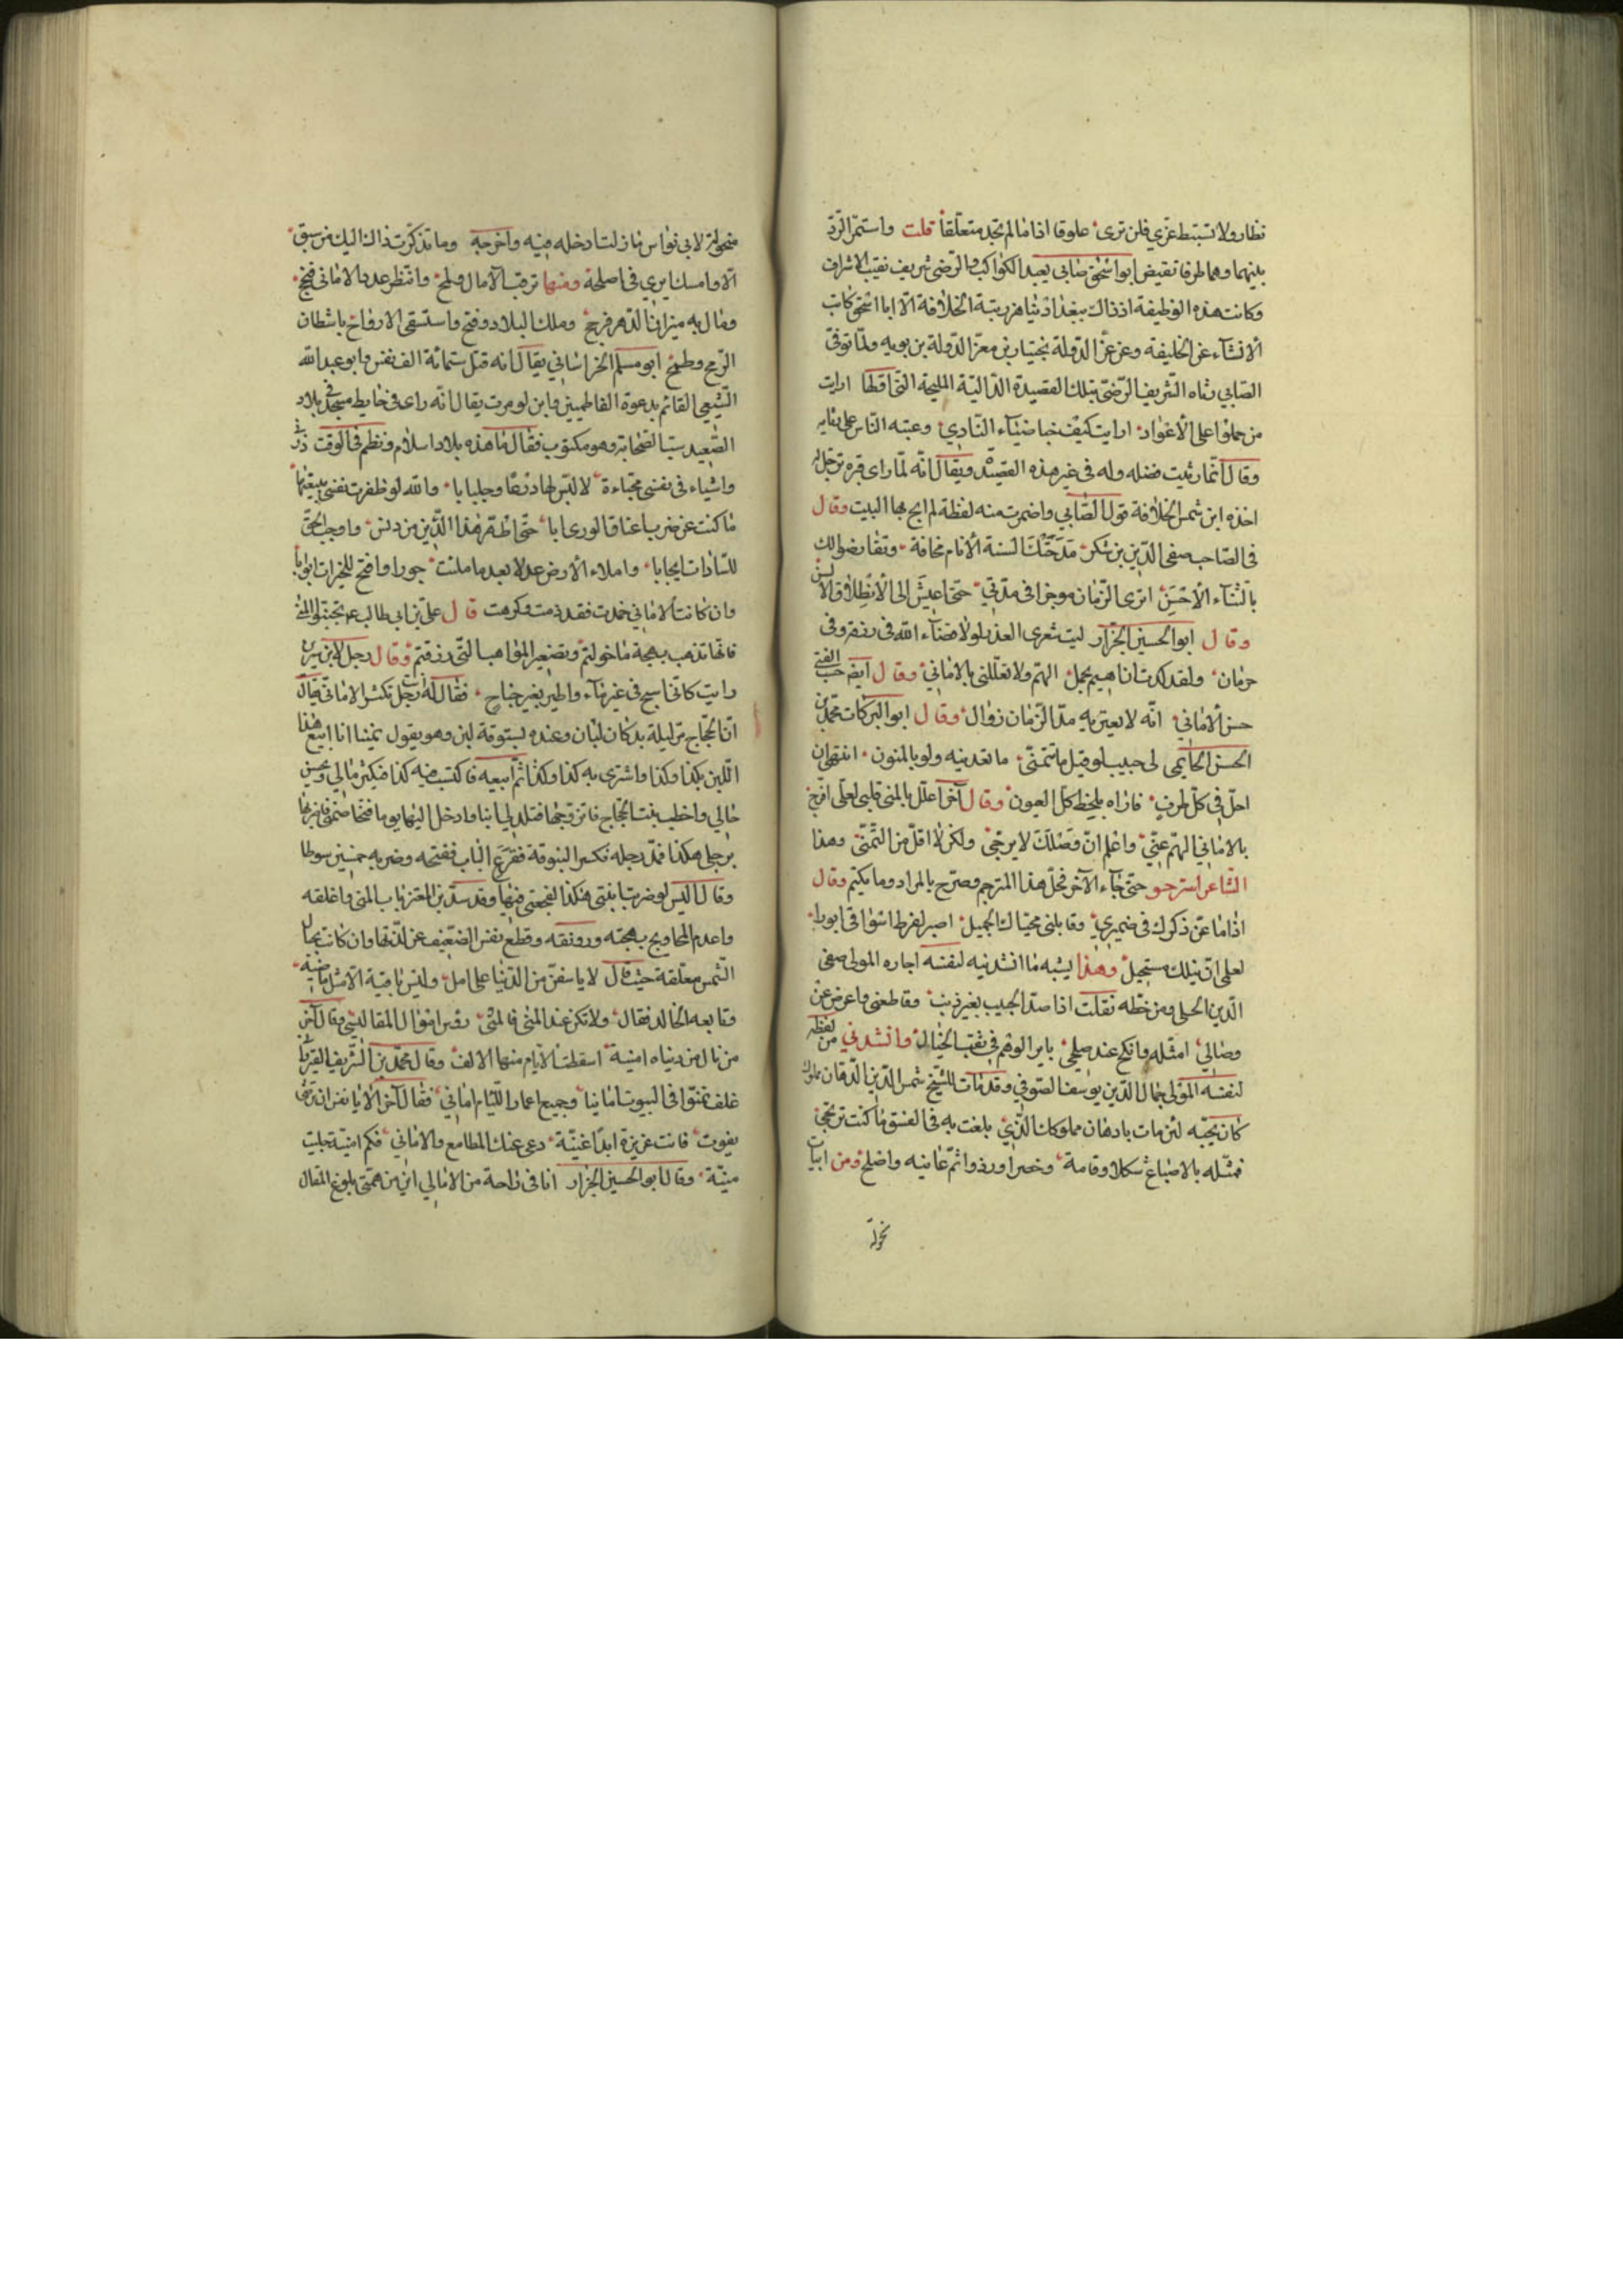 نظار ولا تستبط عزي فلن ترى علوقا اذا ما لم تجد متعلقا قلت واستمر الود
بينهما وهما طرفا نقيض ابو اسحق صابي يعبد الكواكب والرضى شريف نقيب الاشراف
وكانت هذه الوظيفة اذ ذاك ببغداد تناهز رتبة الخلافة الا ابا اسحق كاتب
الانشآء عن الخليفه وعن عز الدولة بختيار بن معز الدولة بن بويه ولما توفى
الصابي رثاه الشريف الرضى بتلك القصيدة الدالية المليحة التى اولها ارايت
من حملوا على الاعواد ارايت كيف خبا ضيآء النادي وعتبه الناس على رثايه
وقال انما رثيت فضله وله فى غير هذه القصيده ويقال انه لما راى قبره ترجل له
اخذه ابن شمس الخلافة قول الصابي واضمرت منه لفظة لم ابح بها البيت وقال
فى الصاحب صفى الدين بن شكر مدحتك السنة الانام مخافة وتقارضوا لك
بالثنآء الاحسن اترى الزمان موخرا فى مدتي حتى اعيش الى انطلاق الالسن
وقال ابو الحسين الجزار ليت شعرى العذر لولا قضآء الله فى رزقه وفى
حرمان ولقد كدت انا هيم بجمل الهم ولا تعللنى بالاماني وقال ايضا حب الفتى
حسن الاماني انه لا يعتريه مدا الزمان زوال وقال ابو البركات محمد بن
الحسن الحاتمى لى حبيب لو قيل ما تتمنى ما تعديته ولو بالمنون اشتهى ان
احل فى كل طرف فاراه بلحظ كل العيون وقال آخر اعلل بالمنى قلبى لعلى افرج
بالاماني الهم عني واعلم ان وصلك لا يرجى ولكن لا اقل من التمنى وهذا
الشاعر استرحو حتى جآء الآخر فحل هذا المترجم وصرح بالمراد وما يكتم وقال
اذا ما عن ذكرك فى ضميري وقابلنى محياك الجميل اصير لفرط اشواقى ابورا
لعلى ان نيلك مستحيل وهذا يشبه ما انشدنيه لنفسه اجازه المولى صفى
الدين الحلى ومن خطه نقلت اذا صد الحبيب بغير ذنب وقاطعنى واعرض عن
وصالي امثله وانكح عند صلحى باير الوهم فى ثقب الخيال وانشدني من لفظه
لنفسه المولى جمال الدين يوسف الصوفي وقد مات للشيخ شمس الدين الدهان مملوك
كان يحبه لئن مات يا دهان مملوكك الذي بلغت به فى الفسق ما كنت ترتجى
فمثله بالاصباغ شكلا وقامة وخصرا وردفا ثم عاينه واصلح ومن ابيات
نحوله
منحولة لابى نواس ما زلت ادخله فيه واخرجه وما تذكرت ذاك اليك من سبق
الا وامسك ايري فى اصلحة ومنها ترقب الآمال ولمح وانتظر عدبا الامانى فنجح
وقال به ميزان الدهر فرجح وملك البلاد وفتح واستسقى الارواح باشطان
الرمح وطمح ابو مسلم الخراساني يقال انه قتل ستمائة الف نفس وابو عبد الله
الشيعي القائم بدعوة الفاطميين وابن تومرت يقال انه راى فى حايط مسجد فى بلاد
الصعيد سب الصحابة وهو مكتوب فقال ما هذه بلاد اسلام ونظم فى الوقت
واشياء فى نفسى مخباءة لالبسن لها درعا وجلبابا والله لو ظفرت نفسى ببغيتها
ما كنت عن ضرب اعناق الورى ابا حتى اطهر هذا الدين من دنس واوجب الحق
للسادات ايجابا واملاء الارض عدلا بعد ما ملئت جورا وافتح للخيرات ابوابا
وان كانت الاماني حمدت فقد ذمت وكرهت قال على بن ابى طالب تجنبوا المنى
فانها تذهب ببهجة ما خولتم وتصغير المواهب التى رزقتم وقال رجل لابن سيرين
رايت كانى اسبح فى غير مآء واطير بغير جناح فقال له انت رجل تكثر الاماني يقال
ان الحجاج مر ليلة بدكان لبان وعنده بستوقة لبن وهو يقول متمنيا انا ابيع هذا
اللبن بكذا وكذا واشترى به كذا وكذا ثم ابيعه فاكتسب فيه كذا فيكثر مالي ويحسن
حالي واخطب بنت الحجاج فاتزوجها فتلد لي ابنا وادخل اليها يوما فتخاصمنى فاضربها
برجلى هكذا فمد رجله فكسر البستوقة فقرع الباب ففتحه وضربه خمسين سوطا
وقال اليس لو ضربت ابنتى هكذا الفجعتى فيها وقد سد ابن المعتز باب المنى واغلقه
واعدم المحاويج بهجته ورونقه وقطع نفس الضعيف عن لذتها وان كانت بحبال
الشمس معلقة حيث قال لا تاسفن من الدنيا على امل وليس باقية الا مثل ماضيه
وتابعه الخالد فقال ولا تكن عند المنى فالمنى رؤس اموال المفاليس وقال آخر
من نال من دنياه امنية اسقطت الايام منها الالف وقال محمد بن الشريف القيرواني
غلف تمنوا فى البيوت امانيا وجميع اعمار اللئام اماني فقال آخر الا يا نفس ان ترضى
بقوت فانت عزيزة ابدا غنية دعى عنك المطامع والاماني فكم امنية جلبت
منية وقال ابو الحسين الجزار انا فى راحة من الامالي اين من همتى بلوغ المقال